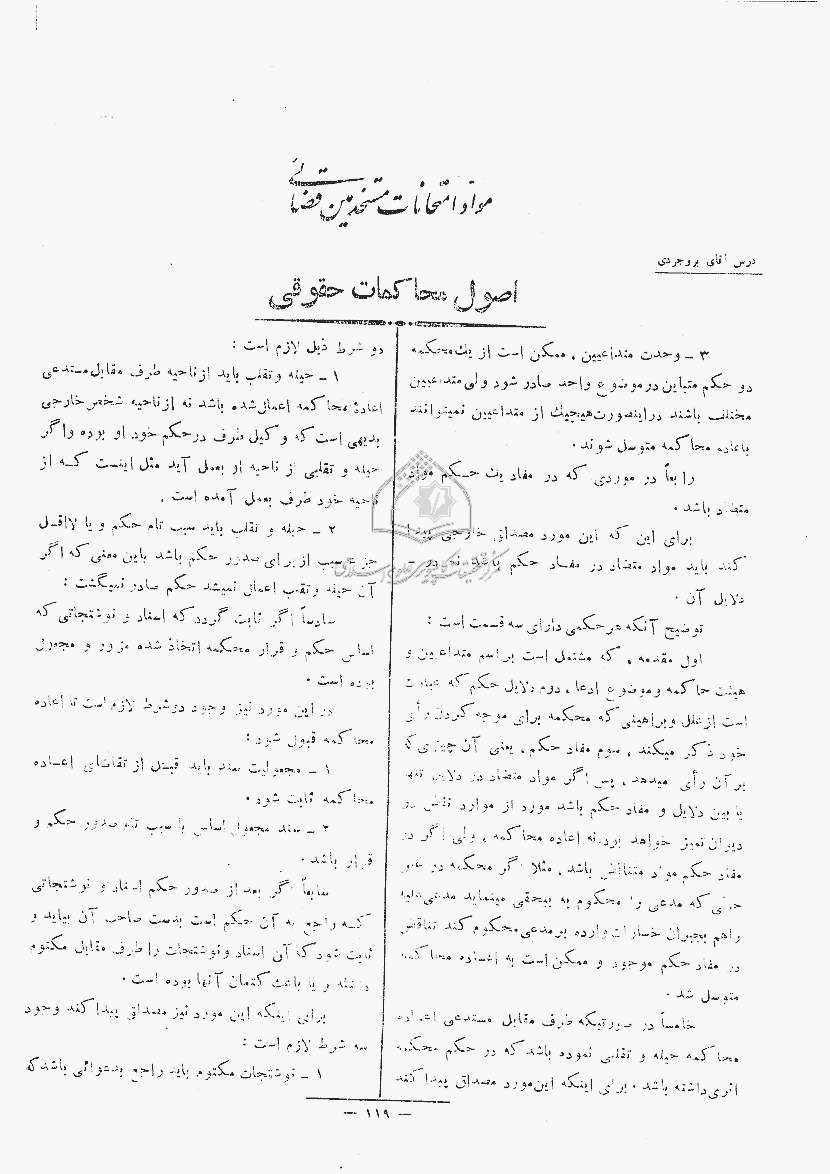 مواد امتحانات مستخدمین قضائی
درس آقای بروجردی
اصول محاکمات حقوقی
۳ - وحدت متداعیین ، ممکن است از یك محکمه
دو حکم متباین در موضوع واحد صادر شود ولی متداعیین
مختلف باشند دراینصورت هیچیك از متداعیین نمیتوانند
باعاده محاکمه متوسل شوند .
رابعاً در موردی که در مفاد یك حکم مواد
متضاد باشد .
برای این که این مورد مصداق خارجی پیدا
کند باید مواد متضاد در مفاد حکم باشد نه در -
دلایل آن .
توضیح آنکه هر حکمی دارای سه قسمت است :
اول مقدمه ، که مشتمل است بر اسم متداعیین و
هیئت حاکمه و موضوع ادعا ، دوم دلایل حکم که عبارت
است از علل و براهینی که محکمه برای موجه کردن رأی
خود ذکر میکند ، سوم مفاد حکم ، یعنی آن چیزی که
بر آن رأی میدهد ، پس اگر مواد متضاد در دلایل تنها
یا بین دلایل و مفاد حکم باشد مورد از موارد نقض در
دیوان تمیز خواهد بود نه اعاده محاکمه ، ولی اگر در
مفاد حکم مواد متناقض باشد ، مثلا اگر محکمه در عین
حالی که مدعی را محکوم به بیحقی مینماید مدعی علیه
را هم بجبران خسارات وارده بر مدعی محکوم کند تناقض
در مفاد حکم موجود و ممکن است به اعاده محاکمه
متوسل شد .
خامساً در صورتیکه طرف مقابل مستدعی اعاده
محاکمه حیله و تقلبی نموده باشد که در حکم محکمه
اثری داشته باشد . برای اینکه این مورد مصداق پیدا کند
دو شرط ذیل لازم است :
۱ - حیله و تقلب باید از ناحیه طرف مقابل مستدعی
اعادۀ محاکمه اعمال شده باشد نه از ناحیه شخص خارجی
بدیهی است که وکیل طرف در حکم خود او بوده و اگر
حیله و تقلبی از ناحیه او بعمل آید مثل اینست که از
ناحیه خود طرف بعمل آمده است .
۲ - حیله و تقلب باید سبب تام حکم و یا لااقل
جزء سبب از برای صدور حکم باشد باین معنی که اگر
آن حیله و تقلب اعمال نمیشد حکم صادر نمیگشت :
سادساً اگر ثابت گردد که اسناد و نوشتجاتی که
اساس حکم و قرار محکمه اتخاذ شده مزور و مجعول
بوده است .
در این مورد نیز وجود دو شرط لازم است تا اعاده
محاکمه قبول شود :
۱ - مجعولیت سند باید قبل از تقاضای اعاده
محاکمه ثابت شود .
۲ - سند مجعول اساس یا سبب تام صدور حکم و
قرار باشد .
سابعاً اگر بعد از صدور حکم اسناد و نوشتجاتی
که راجع به آن حکم است بدست صاحب آن بیاید و
ثابت شود که آن اسناد و نوشتجات را طرف مقابل مکتوم
داشته و یا باعث کتمان آنها بوده است .
برای اینکه این مورد نیز مصداق پیدا کند وجود
سه شرط لازم است :
۱ - نوشتجات مکتوم باید راجع بدعوائی باشد که
- ۱۱۹ -
مرکز تحقیقات کامپیوتری علوم اسلامی